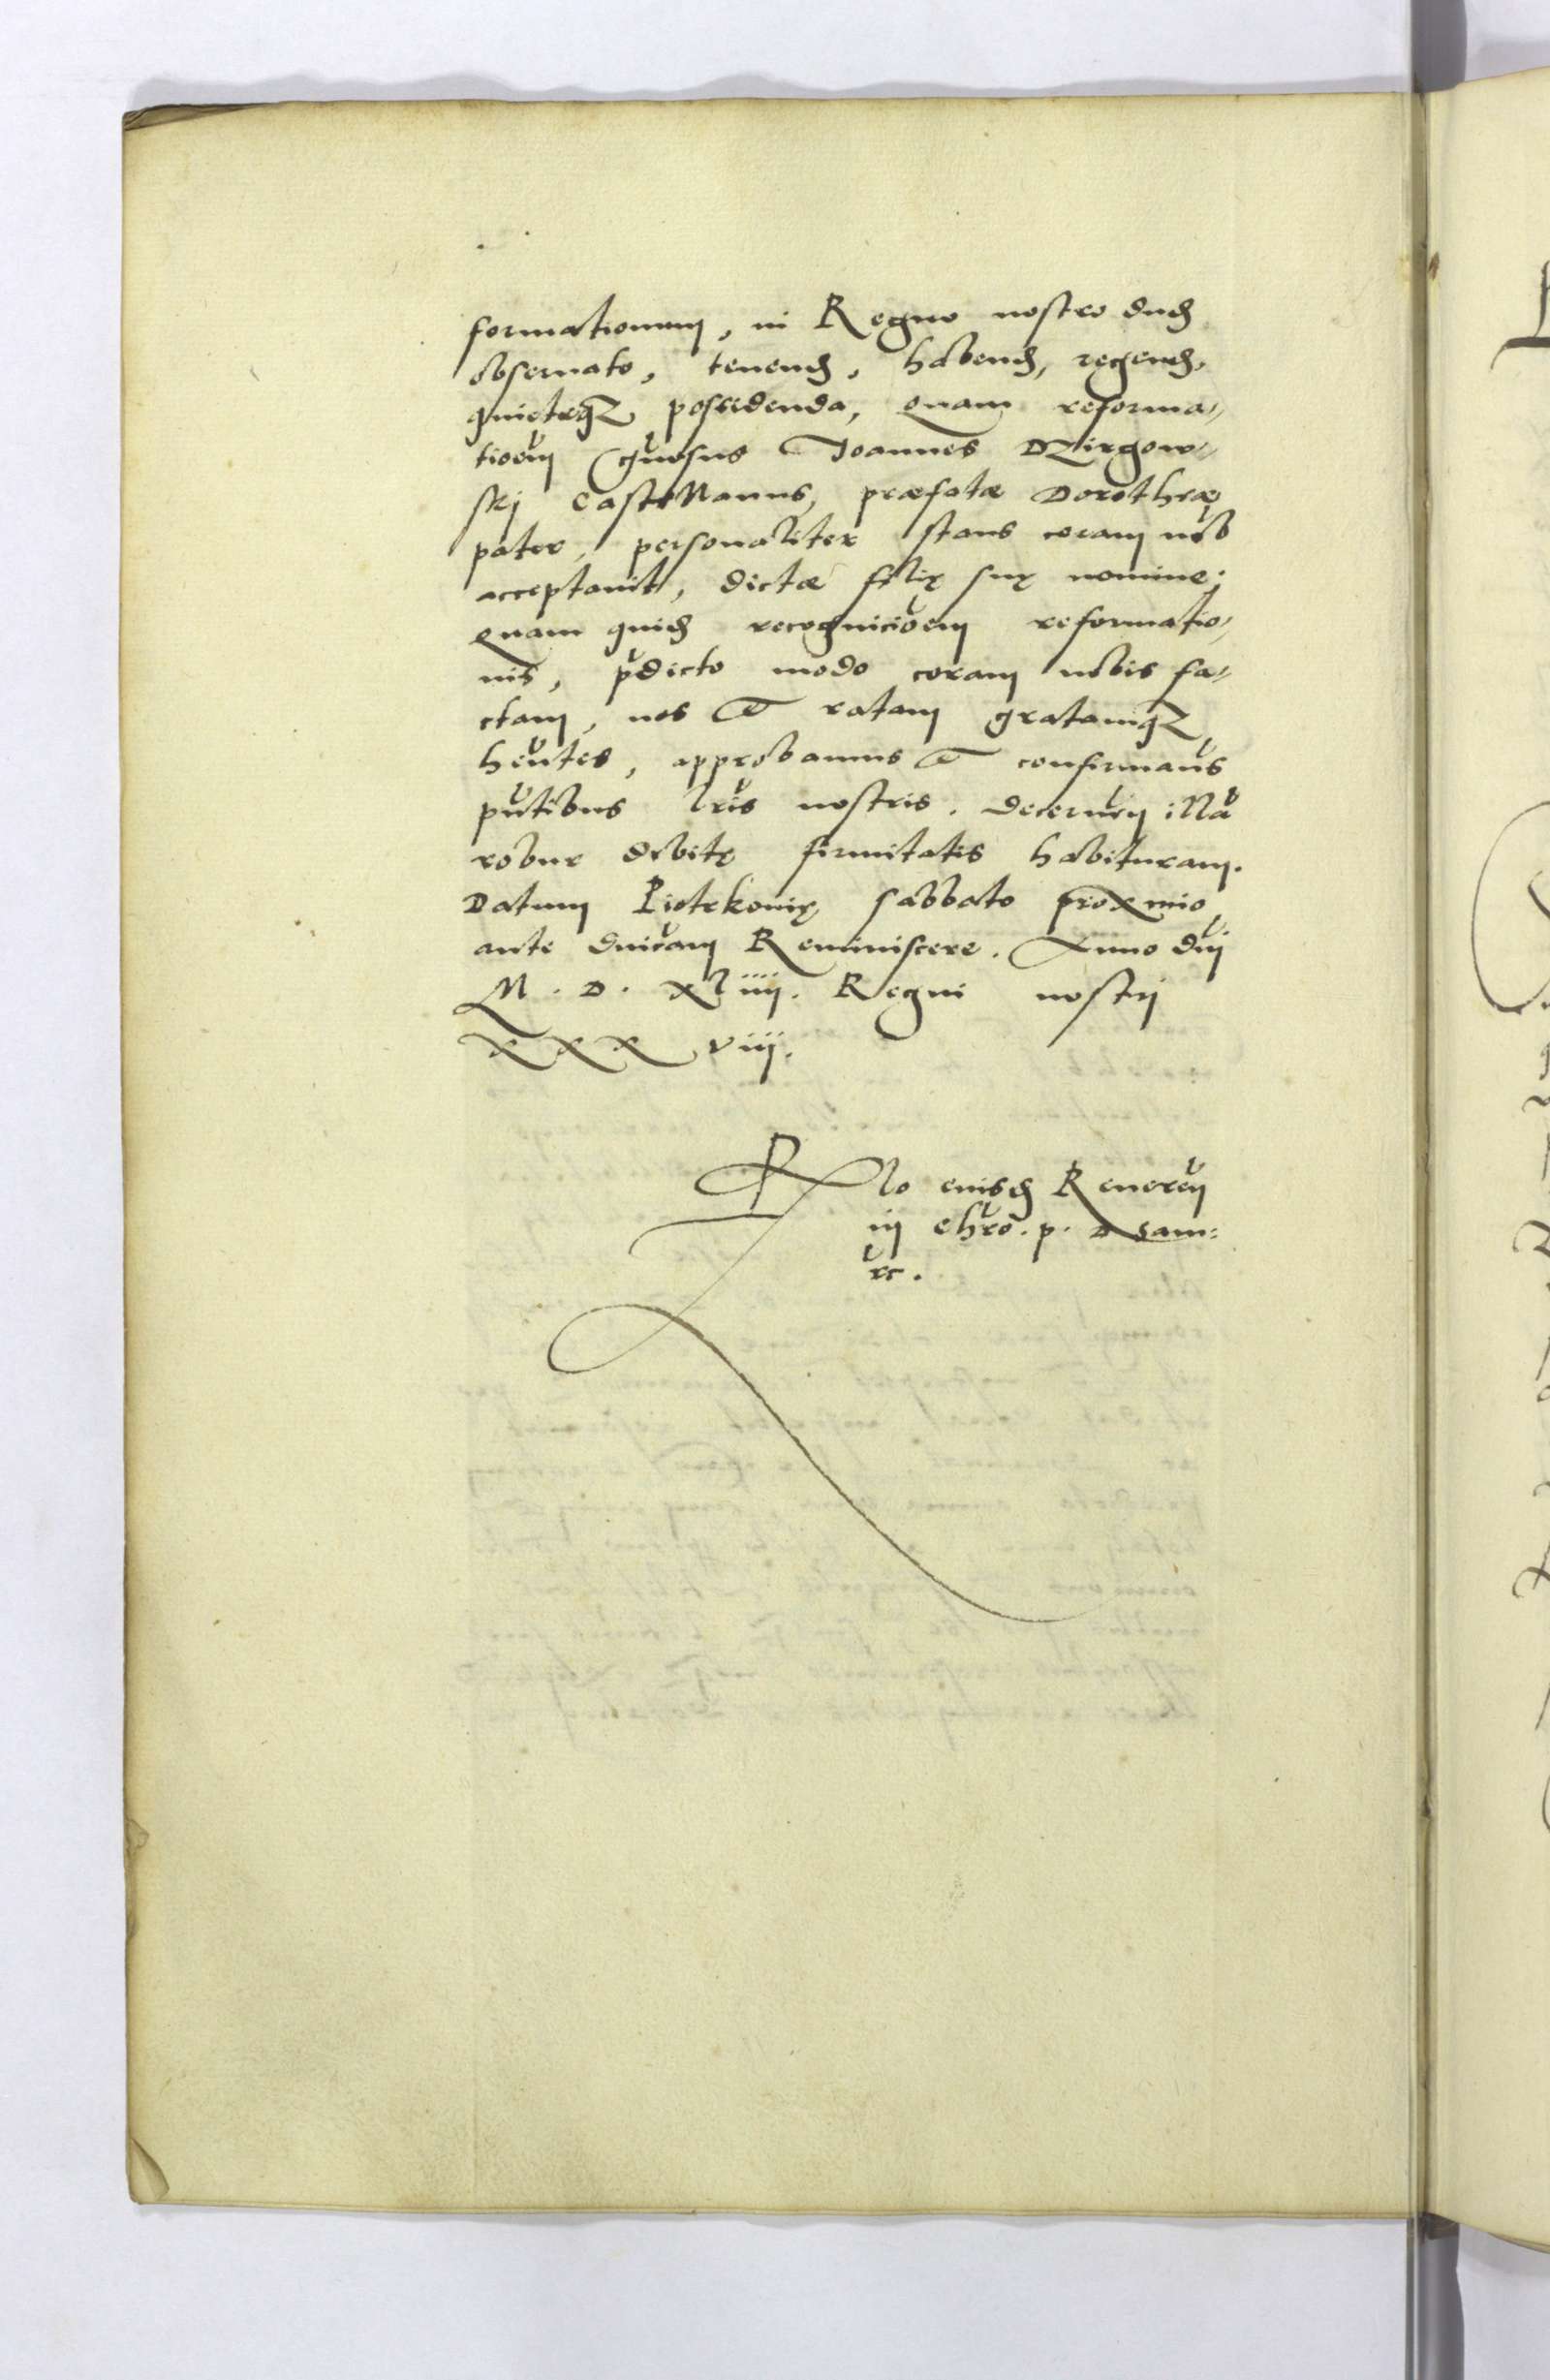 formationum, in Regno nostro dud
obseruato, tenend, habend, regend,
quieteqz possidenda, Quam reforma-
tioem Gnosus Joannes Dzirgow-
skj Castellanus, præfatæ Dorotheæ
pater, personaliter stans coram nob
acceptauit, dictæ filię suę nomine;
Quam quid recognicioem reformatio-
nis, pdicto modo coram nobis fa-
ctam, nos &amp; ratam gratamqz
hentes, approbamus &amp; confirmaus
pntibus lris nostris. Decernen illa
robur debitę firmitatis habituram.
Datum Piotrkouię, sabbato proximo
ante dnicam Reminiscere. Anno dni
M. D. xliiij. Regni nostrj
xxx viij.
Rlo eiusd Reueren
in chro. p. D Sam:
rc.